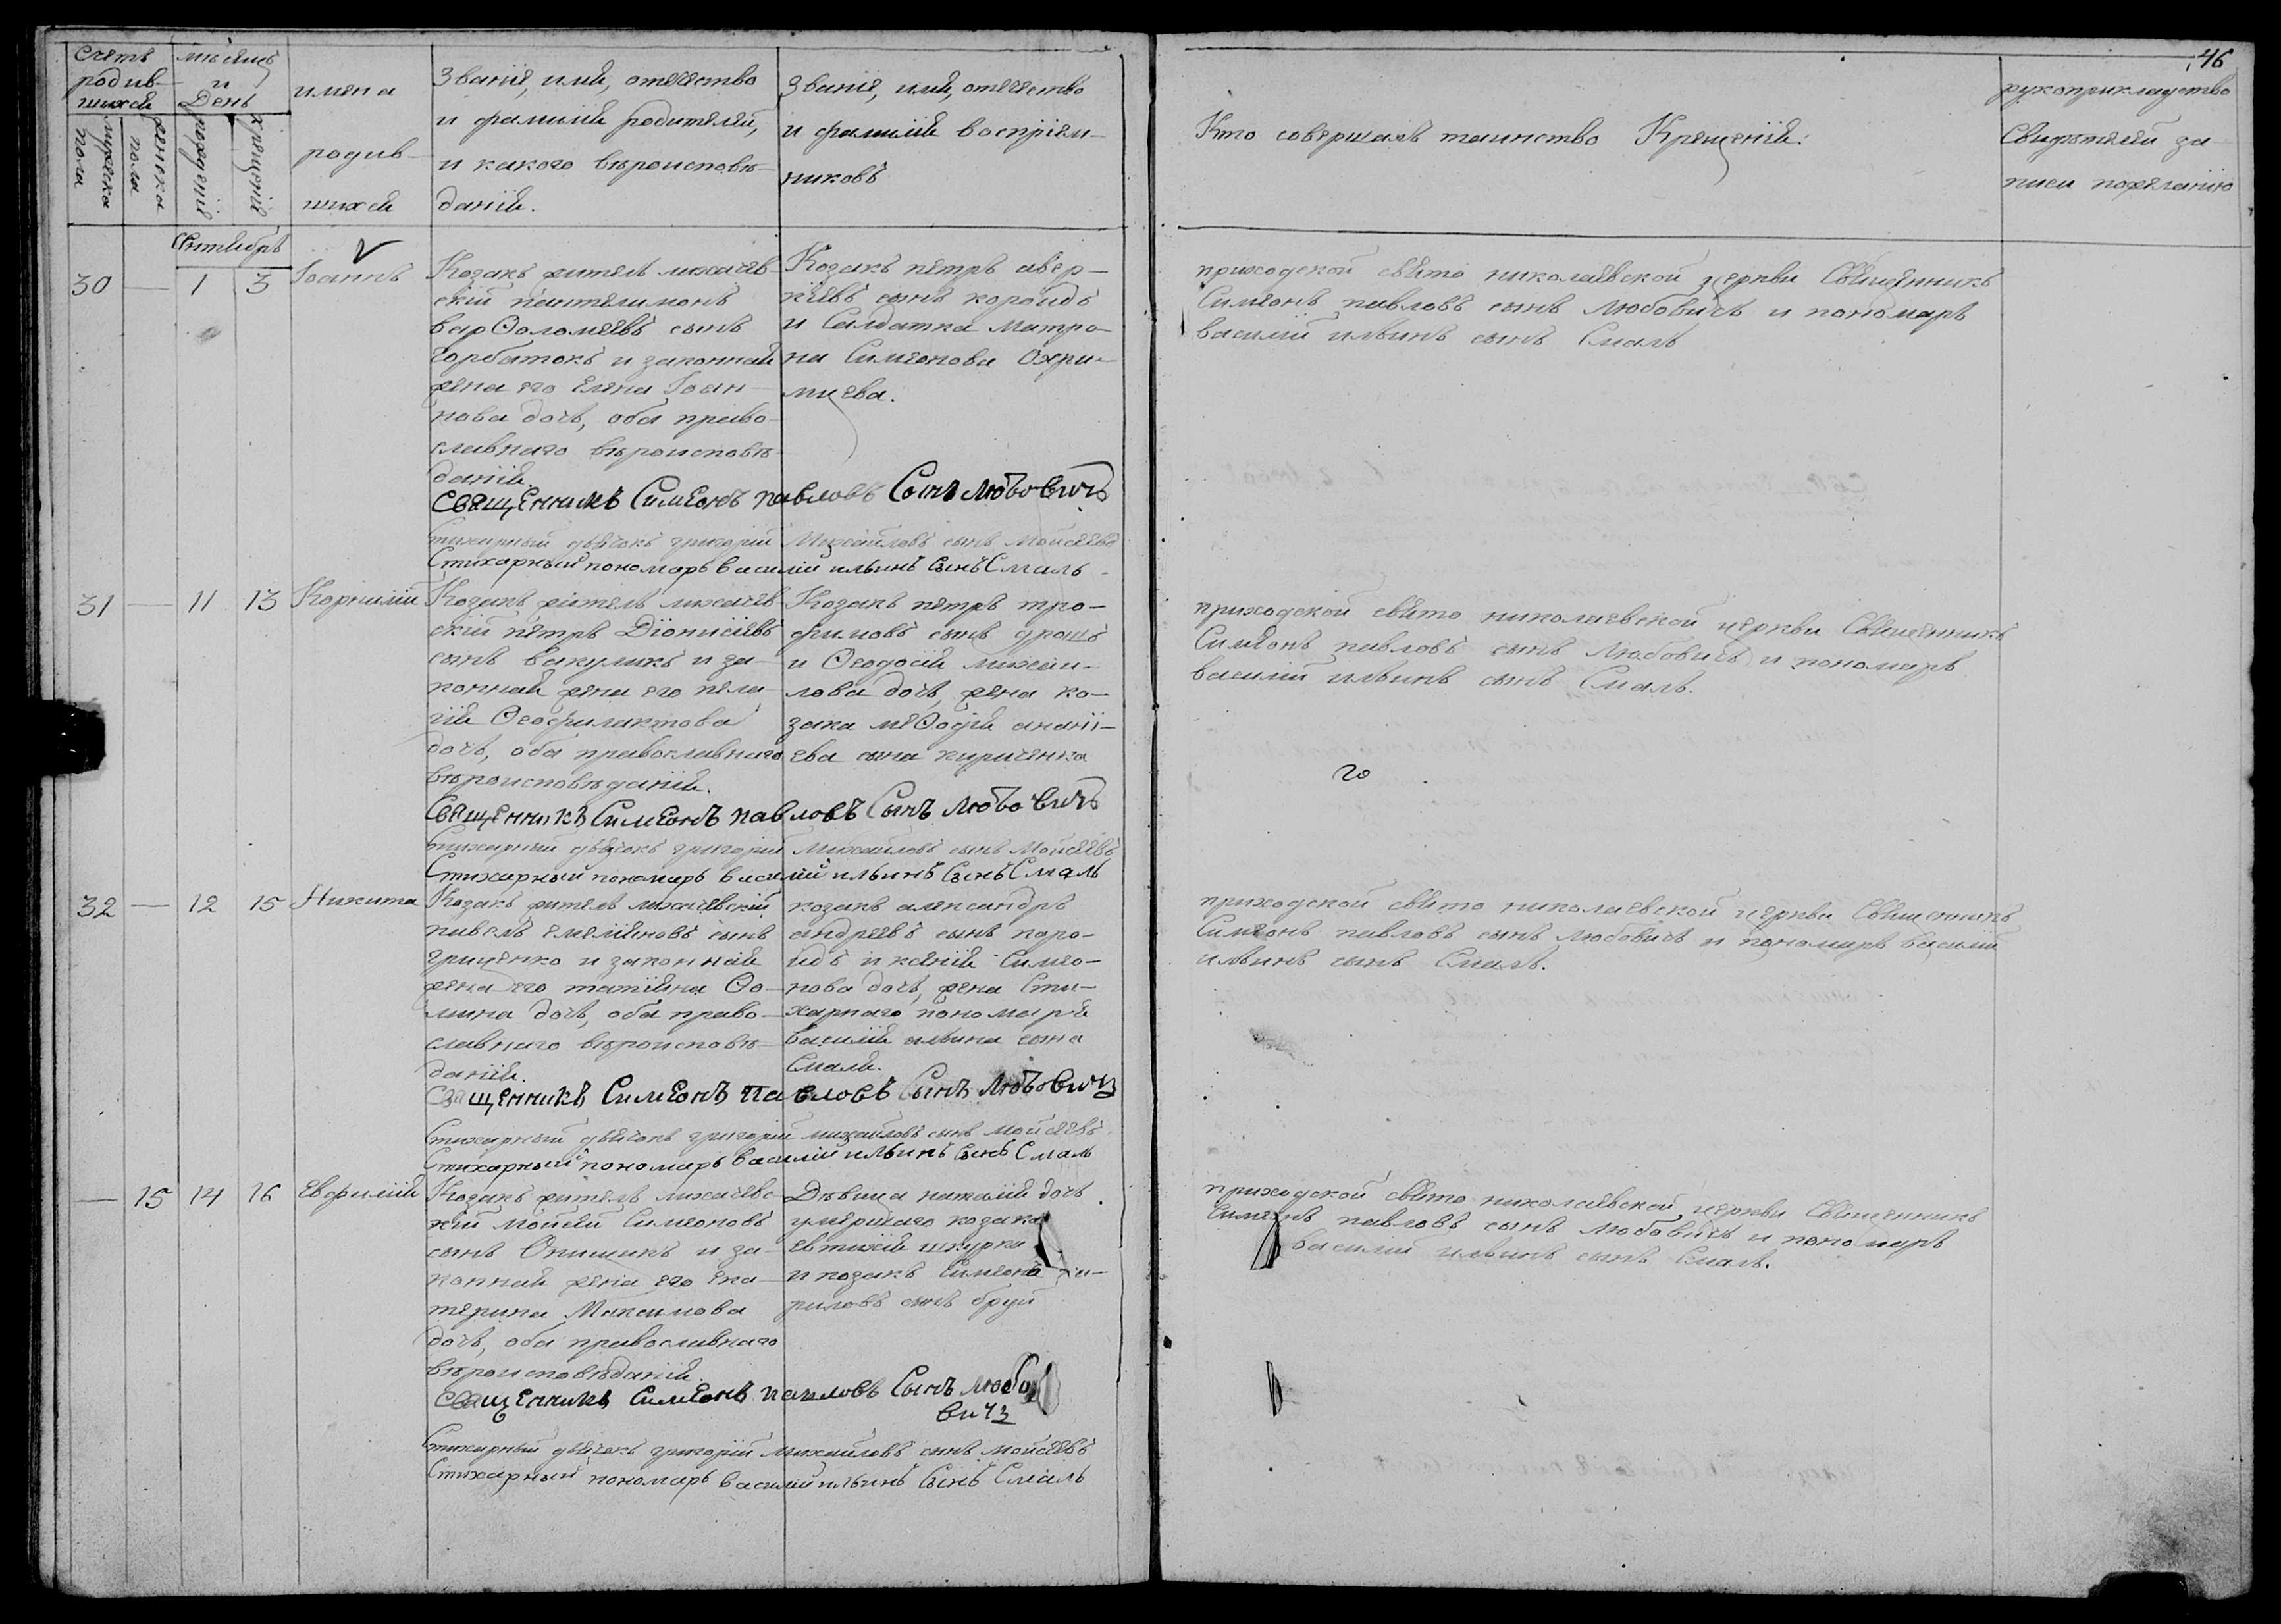 46
Счетъ родив-шихся
мѣсяцъ и День
имена родив-шихся
Званіе, имя, отечество
и фамилія родителей,
и какого вѣроисповѣ-
данія.
Званіе, имя, отечество
и фамилія воспріем-
никовъ
Кто совершалъ таинство Крещенія.
рукоприкладство
Свидѣтелей за-
писи по желанію
мужеска пола
женска пола
рожденія
крещенія
Сентябрь
30 — 1 3 Іоаннъ
Козакъ житель лихачев-
скій пантелимонъ
варѳоломеевъ сынъ
горбатокъ и законная
жена его Елена Іоан-
нова дочь, оба право-
славнаго вѣроисповѣ-
данія.
Козакъ петръ авер-
кіевъ сынъ короидъ
и Салдатка Матро-
на Симеонова Охри-
мцева.
приходской свято николаевской церкви Священникъ
Симеонъ павловъ сынъ Любовичъ и пономарь
василій ильинъ сынъ Смаль
Священникъ Симеонъ павловъ Сынъ Любовичъ
Стихарный дьячокъ григорій Михайловъ сынъ Мойсеевъ
Стихарный пономарь василій ильинъ Сынъ Смаль
31 — 11 13 Корнилій
Козакъ житель лихачев
скій петръ Діонисіевъ
сынъ вакуликъ и за-
конная жена его пела-
гія Ѳеофилактова
дочь, оба православнаго
вѣроисповѣданія.
Козакъ петръ тро-
фимовъ сынъ драшъ
и Ѳеодосія михаи-
лова дочь, жена ко-
зака меѳодія ананіи-
ева сына кириченка
приходской свято николаевской церкви Священникъ
Симеонъ павловъ сынъ Любовичъ и пономарь
василій ильинъ сынъ Смаль.
Священникъ Симеонъ павловъ Сынъ Любовичъ
Стихарный дьячокъ григорій Михайловъ сынъ Мойсеевъ
Стихарный пономарь василій ильинъ Сынъ Смаль
32 — 12 15 Никита
Козакъ житель лихачевскій
павелъ емеліяновъ сынъ
гриценко и законная
жена его татіяна Ѳо-
мина дочь, оба право-
славнаго вѣроисповѣ-
данія.
козакъ александръ
андреевъ сынъ коро-
идъ и ксенія Симео-
нова дочь, жена Сти-
харнаго пономаря
василія ильина сына
Смаля.
приходской свято николаевской церкви Священникъ
Симеонъ павловъ сынъ Любовичъ и пономарь василій
ильинъ сынъ Смаль.
Священникъ Симеонъ павловъ Сынъ Любовичъ
Стихарный дьячокъ григорій михайловъ сынъ мойсеевъ
Стихарный пономарь василій ильинъ Сынъ Смаль
— 15 14 16 Евфимія
Козакъ житель лихачевс-
кій Мойсей Симеоновъ
сынъ Онищикъ и за-
конная жена его Ека-
терина Максимова
дочь, оба православнаго
вѣроисповѣданія.
Дѣвица наталія дочь
умершаго козака
евтихія шкурка
и козакъ Симеонъ ки-
риловъ сынъ бруй
приходской свято николаевской церкви Священникъ
Симеонъ павловъ сынъ Любовичъ и пономарь
василій ильинъ сынъ Смаль.
Священникъ Симеонъ павловъ Сынъ Любо
вичъ
Стихарный дьячокъ григорій михайловъ сынъ мойсеевъ
Стихарный пономарь василій ильинъ Сынъ Смаль